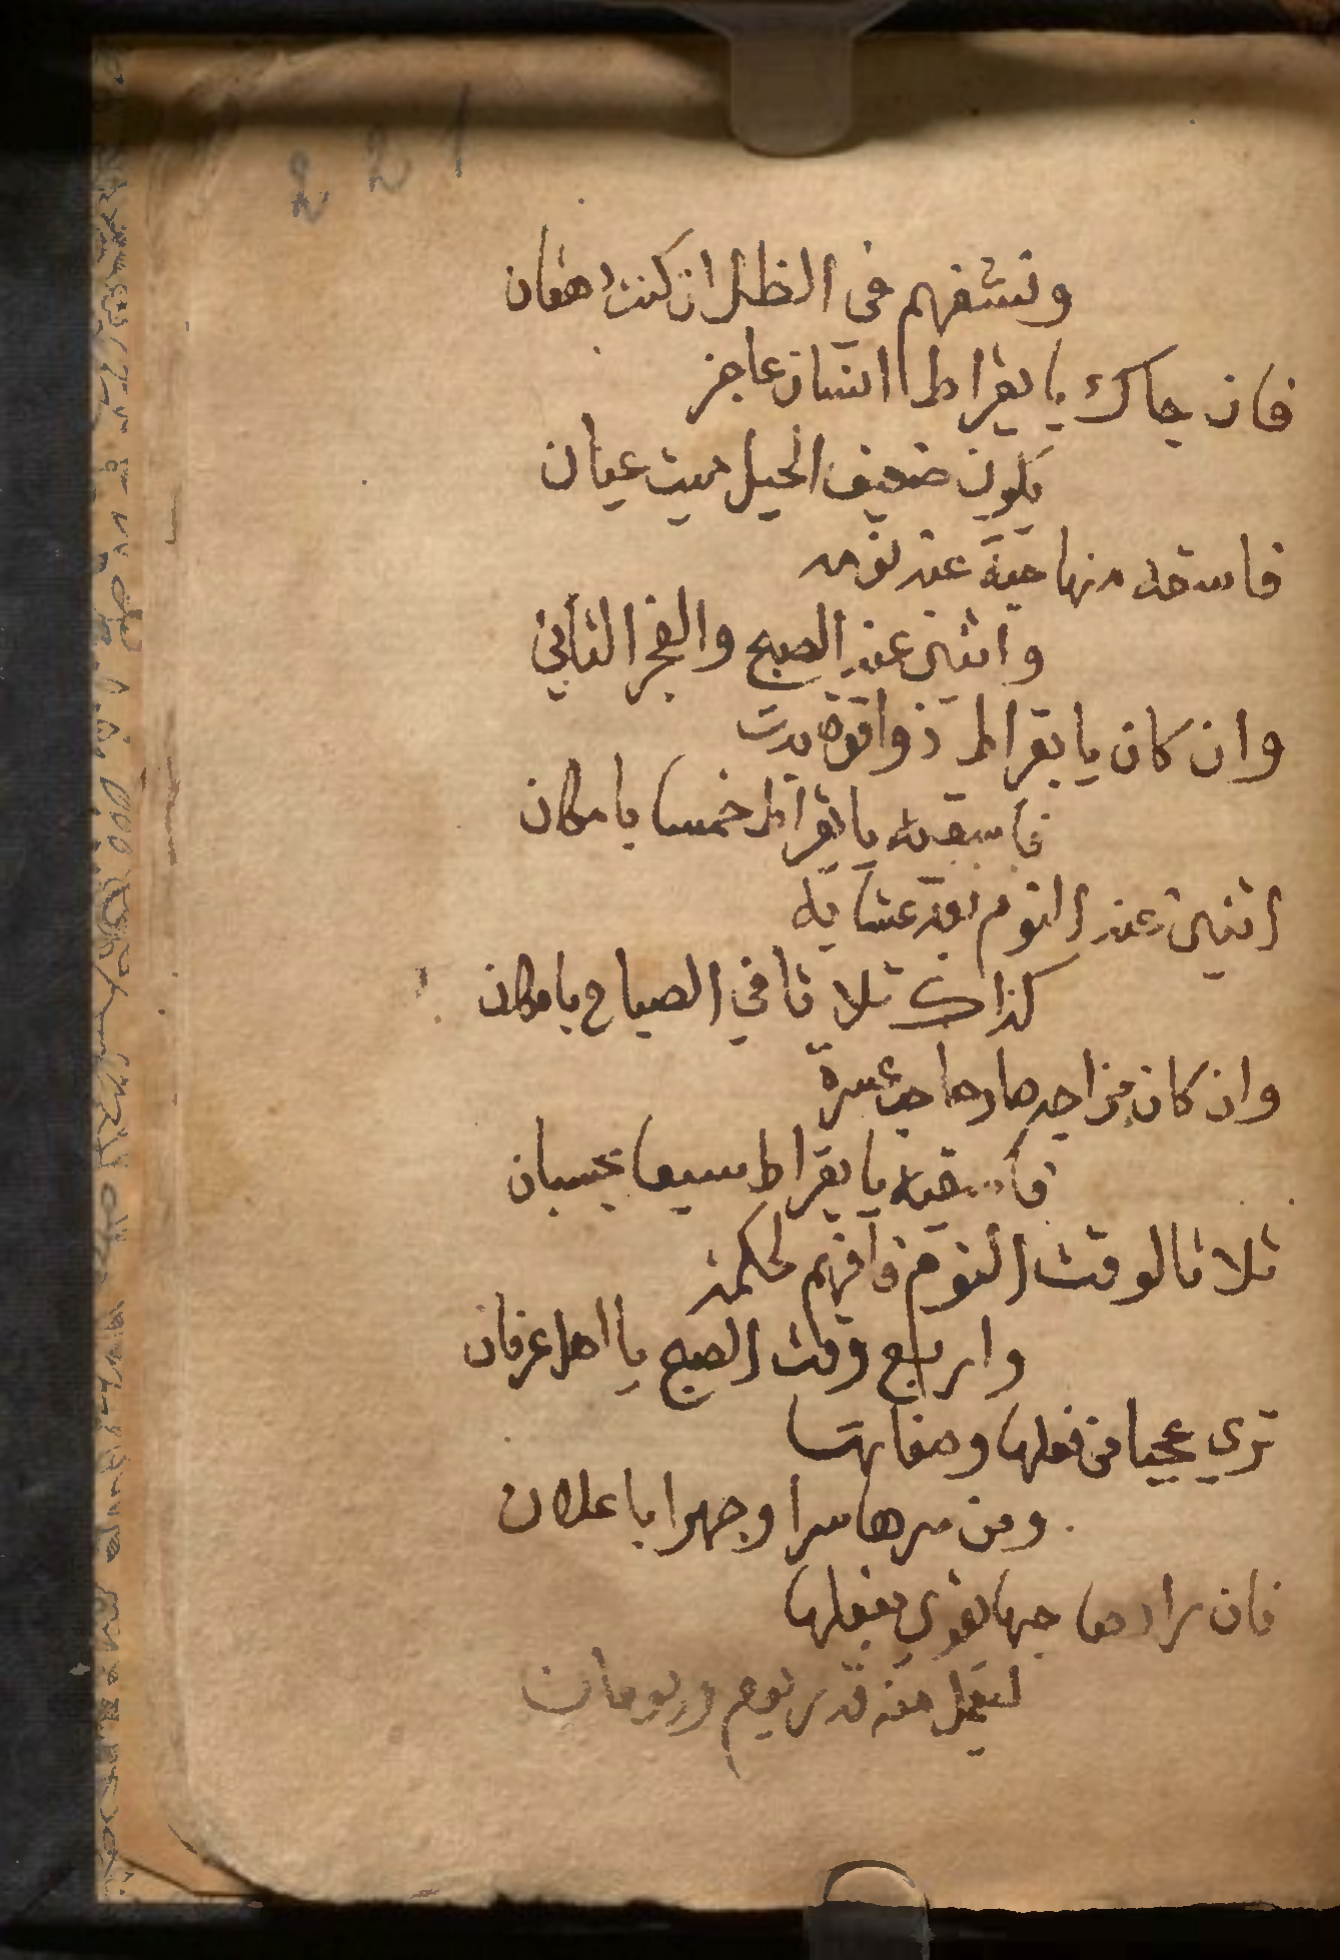 221
وتشفهم في الظل ان كنت دهقان
فان جاك يا بقراط انسان عاجز
يكون ضعيف الحيل ميت عيان
فاسقه منها حبة عند نومه
واثنين عند الصبح والفجر الثاني
وان كان يا بقراط ذوا قوة بدت
فاسقيه يا بقراط خمسا بامكان
اثنين عند النوم بعد عشايه
كذاك ثلاثا في الصباح بامكان
وان كان مزاجه
فاسقيه يا بقراط سبعا بحسبان
ثلاثا لوقت النوم فافهم لحكمة
واربع وقت الصبح يا اهل عرفان
تري عجبا من فعلها وصفاتها
ومن سرها سرا وجهرا باعلان
فان
ليعمل منه قدر يوم ويومان